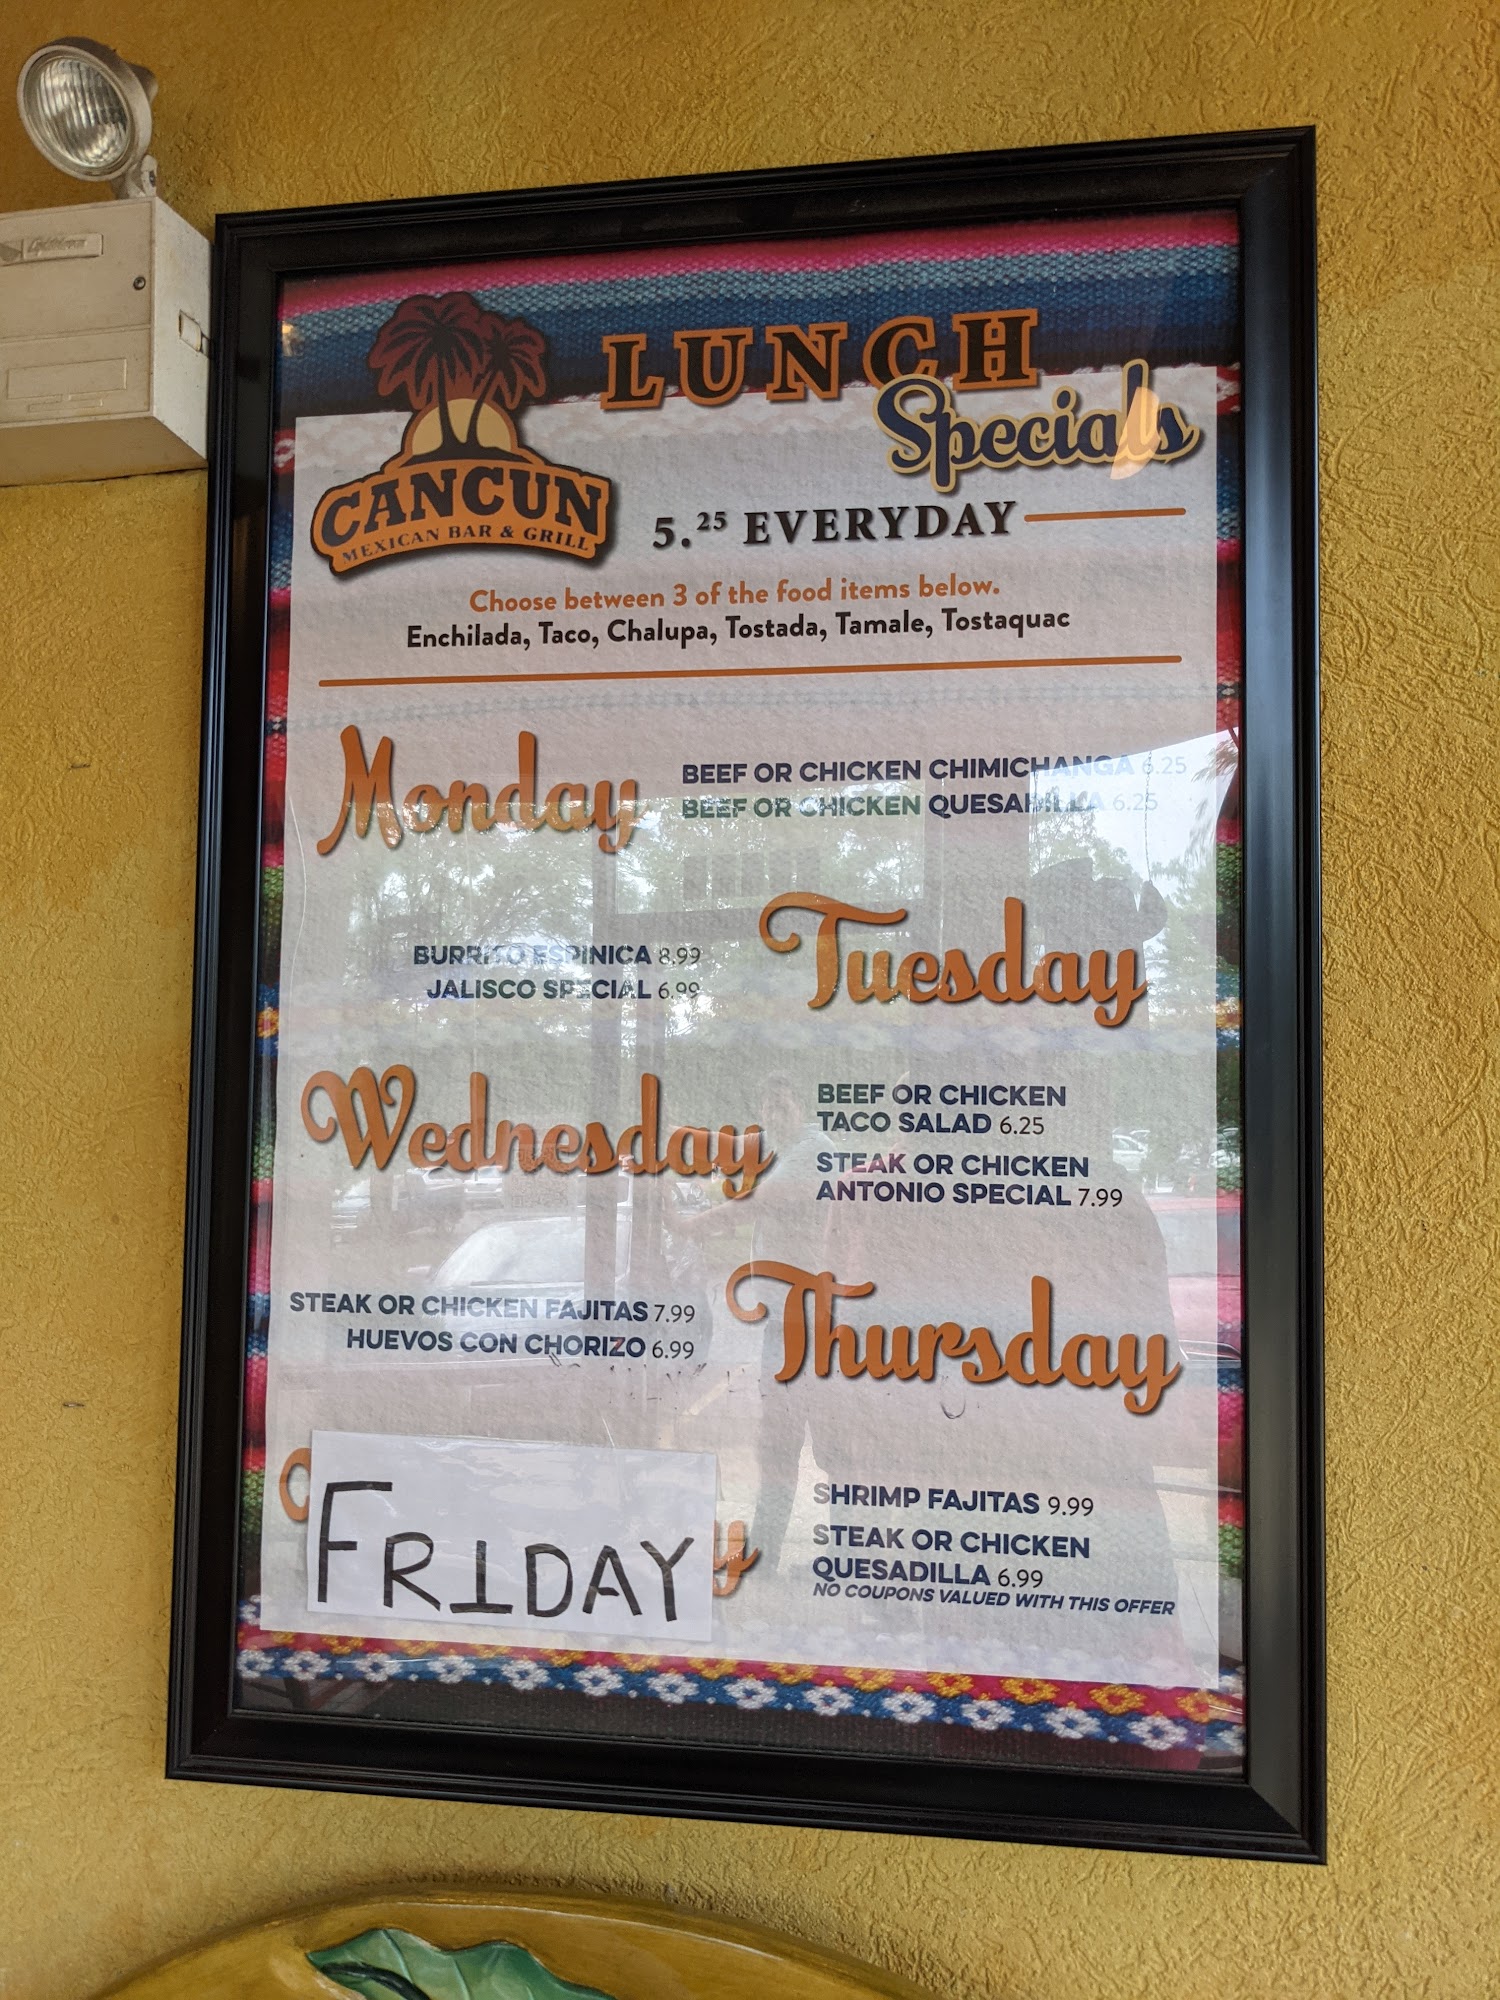 CANCUN
MEXICAN BAR & GRILL
LUNCH
Specials
5.25 EVERYDAY
Choose between 3 of the food items below.
Enchilada, Taco, Chalupa, Tostada, Tamale, Tostaquac
Monday
BEEF OR CHICKEN CHIMICHANGA 6.25
BEEF OR CHICKEN QUESADILLA 6.25
BURRITO ESPINICA 8.99
JALISCO SPECIAL 6.99
Tuesday
Wednesday
BEEF OR CHICKEN
TACO SALAD 6.25
STEAK OR CHICKEN
ANTONIO SPECIAL 7.99
STEAK OR CHICKEN FAJITAS 7.99
HUEVOS CON CHORIZO 6.99
Thursday
FRIDAY
SHRIMP FAJITAS 9.99
STEAK OR CHICKEN
QUESADILLA 6.99
NO COUPONS VALUED WITH THIS OFFER